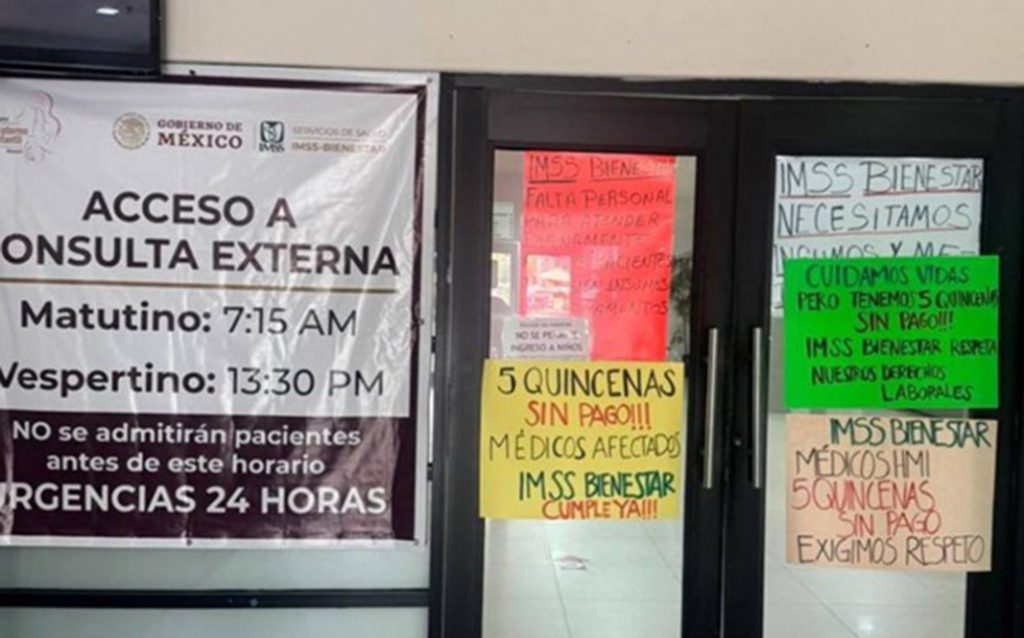 GOBIERNO DE
MÉXICO
IMSS
SERVICIOS DE SALUD
IMSS-BIENESTAR
ACCESO A
ONSULTA EXTERNA
Matutino: 7:15 AM
Vespertino: 13:30 PM
NO se admitirán pacientes
antes de este horario
URGENCIAS 24 HORAS
IMSS BIENESTAR
FALTA PERSONAL
PARA ATENDER
PACIENTES
INSUMOS
NO SE
INGRESO A NIÑOS
5 QUINCENAS
SIN PAGO!!!
MÉDICOS AFECTADOS
IMSS BIENESTAR
CUMPLE YA!!!
IMSS BIENESTAR
NECESITAMOS
INSUMOS Y ME-
CUIDAMOS VIDAS
PERO TENEMOS 5 QUINCENAS
SIN PAGO!!!
IMSS BIENESTAR RESPETA
NUESTROS DERECHOS
LABORALES
IMSS BIENESTAR
MÉDICOS HMI
5 QUINCENAS
SIN PAGO
EXIGIMOS RESPETO